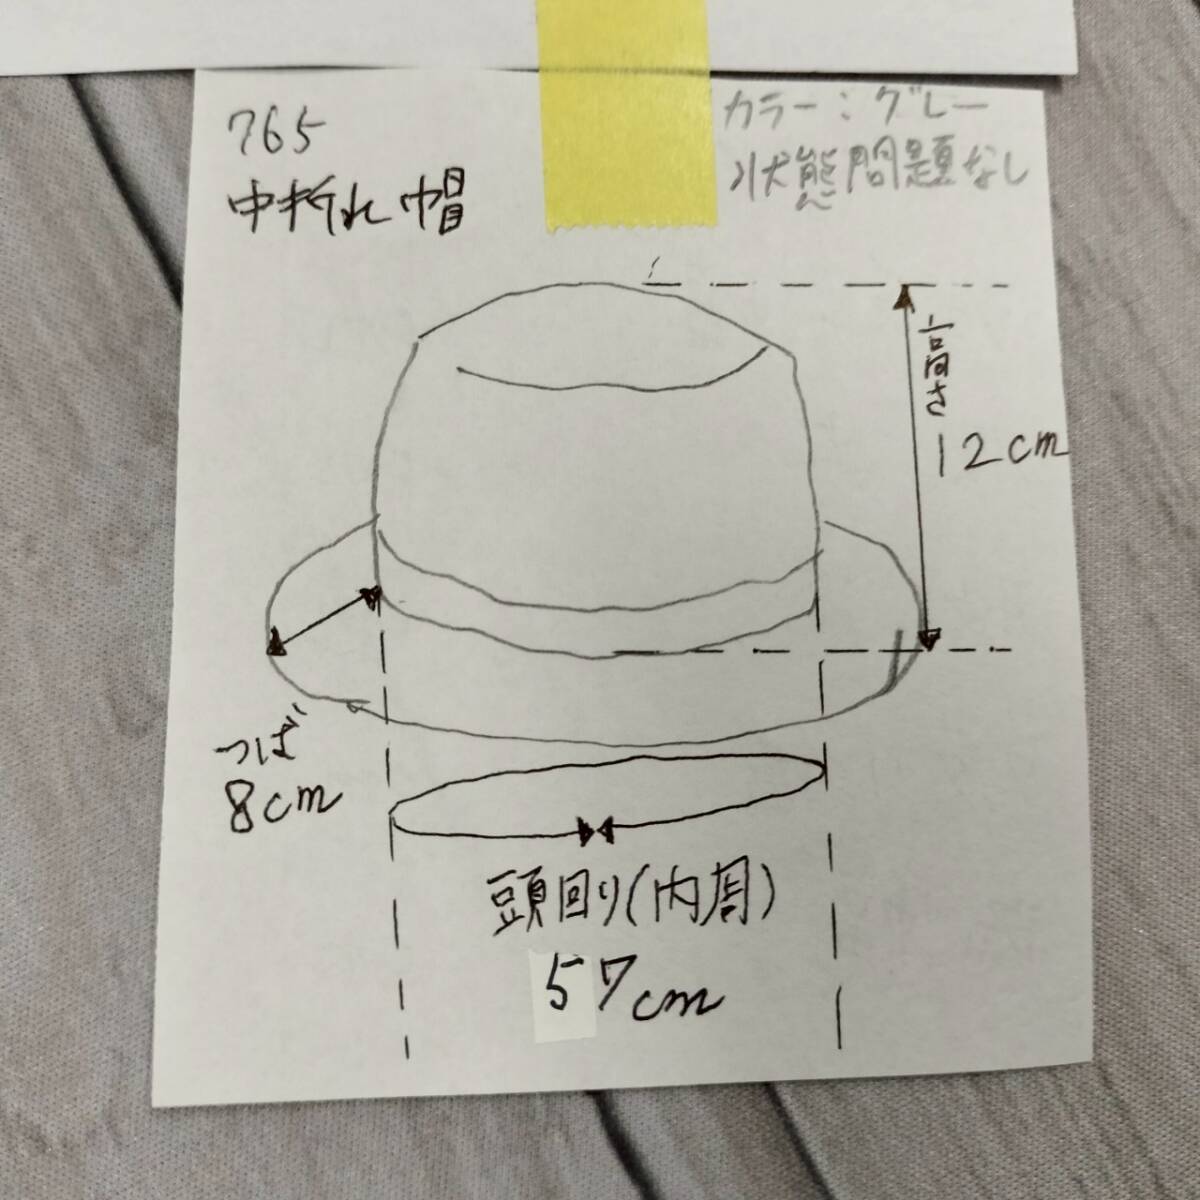 765
中折れ帽
カラー：グレー
状態問題なし
高さ
12cm
つば
8cm
頭回り(内周)
57cm